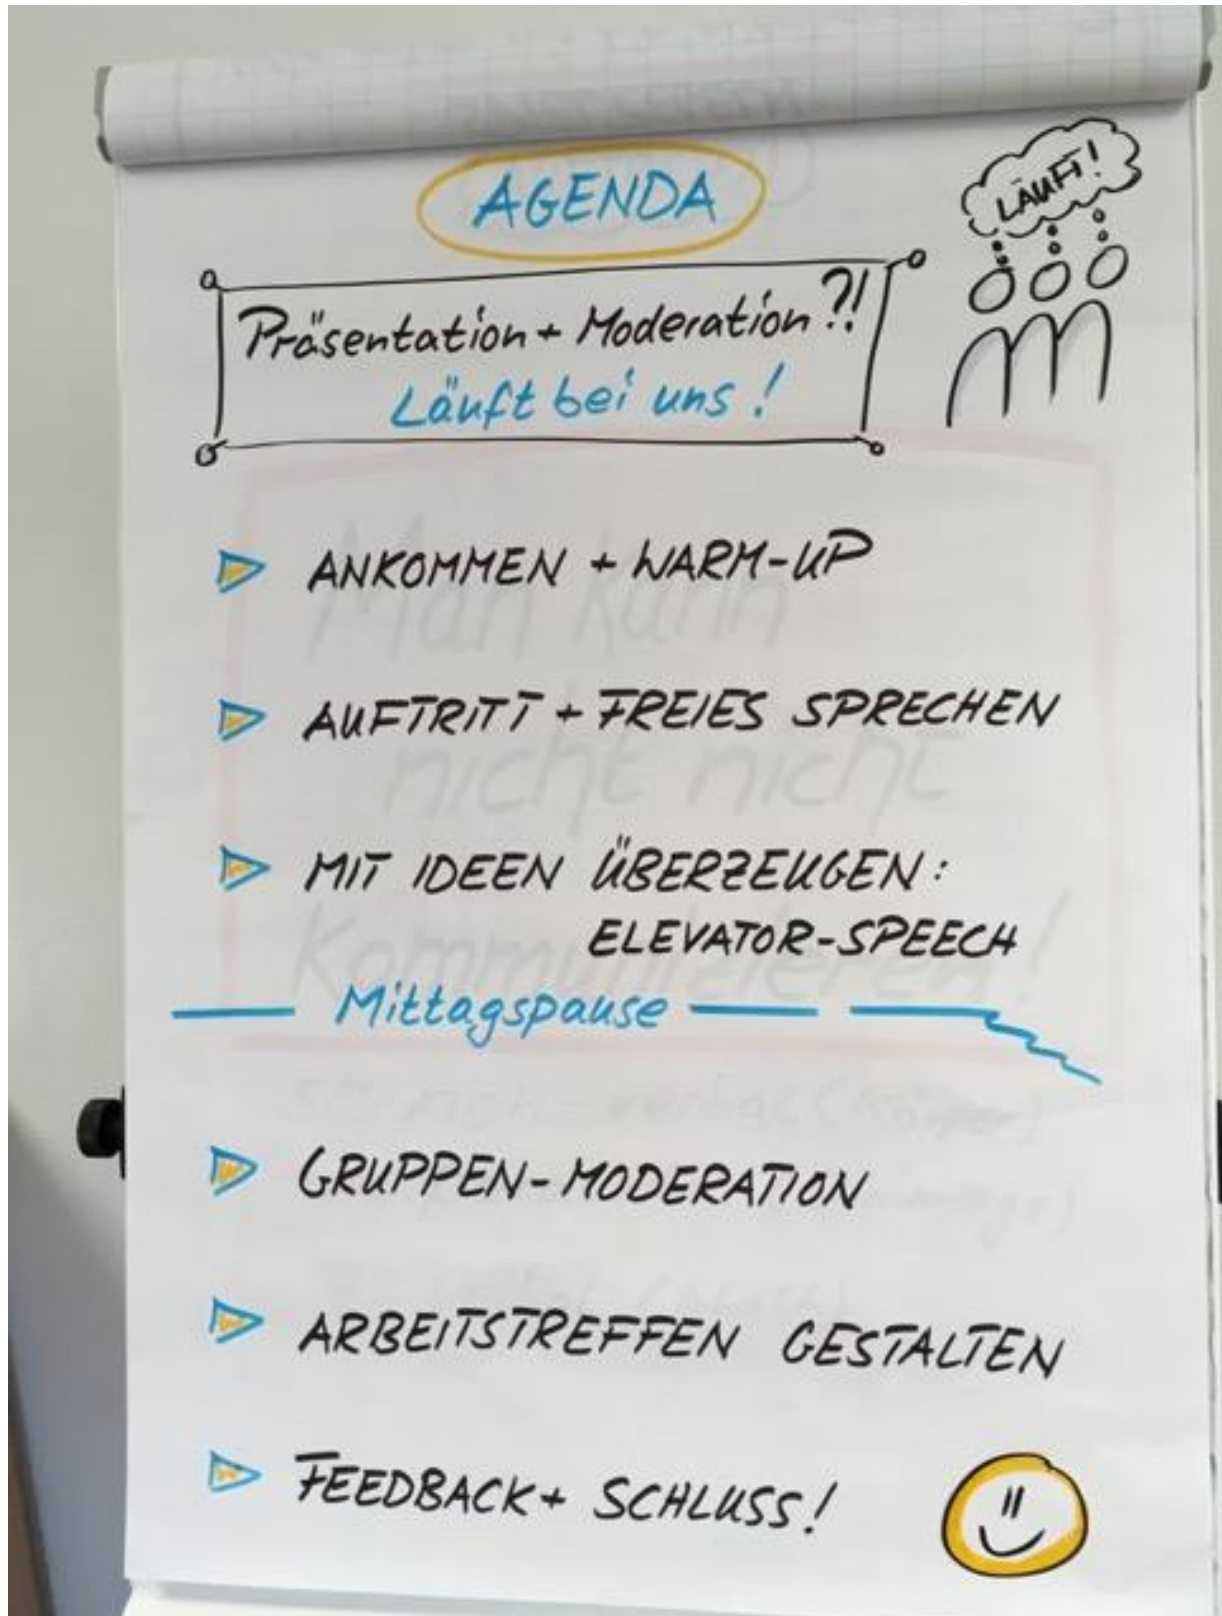 AGENDA
LÄUFT!
Präsentation + Moderation?!
Läuft bei uns!
ANKOMMEN + WARM-UP
AUFTRITT + FREIES SPRECHEN
MIT IDEEN ÜBERZEUGEN:
ELEVATOR-SPEECH
Mittagspause
GRUPPEN-MODERATION
ARBEITSTREFFEN GESTALTEN
FEEDBACK + SCHLUSS!
Man kann
nicht nicht
Kommunizieren!